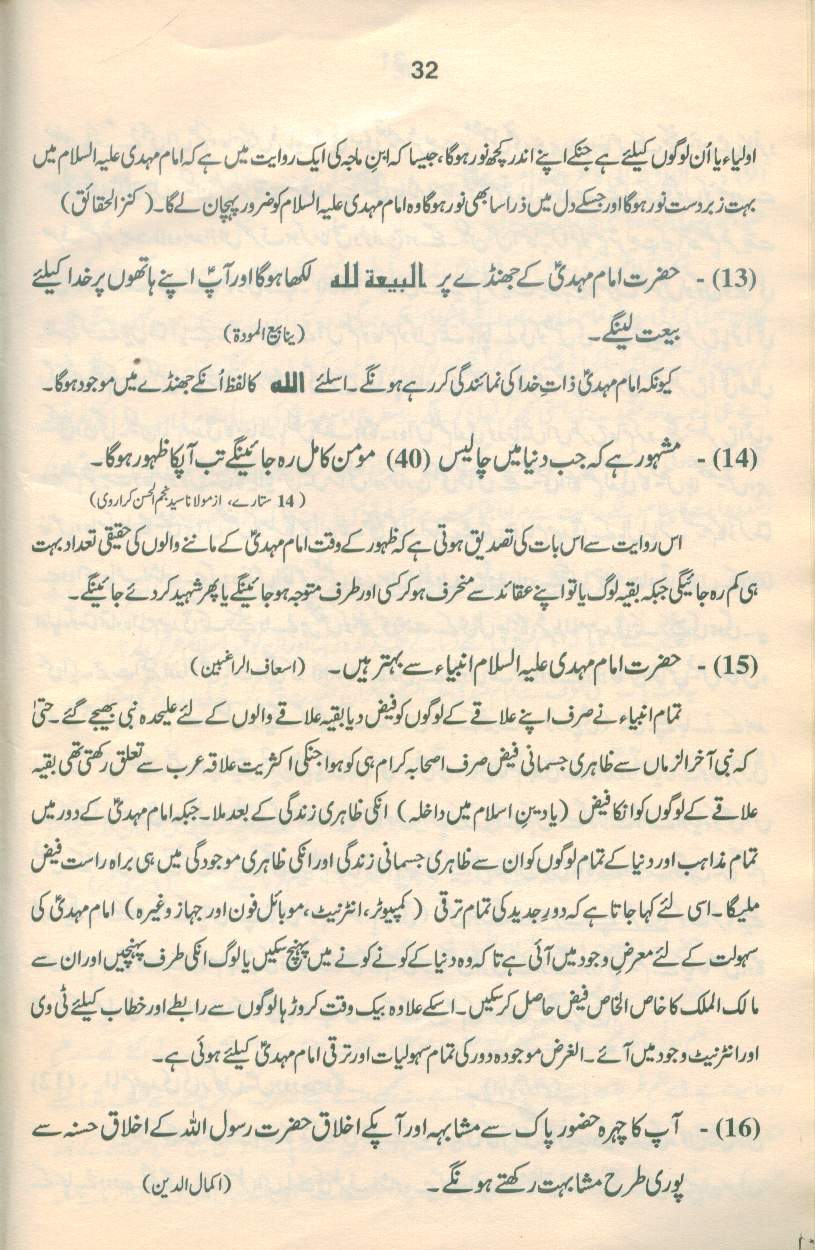 32
اولیاء یا اُن لوگوں کیلئے ہے جنکے اپنے اندر کچھ نور ہوگا، جیسا کہ ابنِ ماجہ کی ایک روایت میں ہے کہ امام مہدی علیہ السلام میں
بہت زبردست نور ہوگا اور جسکے دل میں ذرا سا بھی نور ہوگا وہ امام مہدی علیہ السلام کو ضرور پہچان لے گا۔ (کنز الحقائق)
(13) - حضرت امام مہدیؑ کے جھنڈے پر البیعة لله لکھا ہوگا اور آپؑ اپنے ہاتھوں پر خدا کیلئے
بیعت لینگے۔ (ینابیع المودة)
کیونکہ امام مہدیؑ ذاتِ خدا کی نمائندگی کر رہے ہونگے۔ اسلئے الله کا لفظ اُنکے جھنڈے میں موجود ہوگا۔
(14) - مشہور ہے کہ جب دنیا میں چالیس (40) مؤمن کامل رہ جائینگے تب آپکا ظہور ہوگا۔
(14 ستارے، از مولانا سید نجم الحسن کراروی)
اس روایت سے اس بات کی تصدیق ہوتی ہے کہ ظہور کے وقت امام مہدیؑ کے ماننے والوں کی حقیقی تعداد بہت
ہی کم رہ جائیگی جبکہ بقیہ لوگ یا تو اپنے عقائد سے منحرف ہو کر کسی اور طرف متوجہ ہو جائینگے یا پھر شہید کر دئے جائینگے۔
(15) - حضرت امام مہدی علیہ السلام انبیاء سے بہتر ہیں۔ (اسعاف الراغبین)
تمام انبیاء نے صرف اپنے علاقے کے لوگوں کو فیض دیا بقیہ علاقے والوں کے لئے علیحدہ نبی بھیجے گئے۔ حتیٰ
کہ نبی آخر الزماں سے ظاہری جسمانی فیض صرف اصحابہ کرام ہی کو ہوا جنکی اکثریت علاقہ عرب سے تعلق رکھتی تھی بقیہ
علاقے کے لوگوں کو انکا فیض (یا دینِ اسلام میں داخلہ) انکی ظاہری زندگی کے بعد ملا۔ جبکہ امام مہدیؑ کے دور میں
تمام مذاہب اور دنیا کے تمام لوگوں کو ان سے ظاہری جسمانی زندگی اور انکی ظاہری موجودگی میں ہی براہ راست فیض
ملیگا۔ اسی لئے کہا جاتا ہے کہ دورِ جدید کی تمام ترقی (کمپیوٹر، انٹرنیٹ، موبائل فون اور جہاز وغیرہ) امام مہدیؑ کی
سہولت کے لئے معرضِ وجود میں آئی ہے تاکہ وہ دنیا کے کونے کونے میں پہنچ سکیں یا لوگ انکی طرف پہنچیں اور ان سے
مالک الملک کا خاص الخاص فیض حاصل کر سکیں۔ اسکے علاوہ بیک وقت کروڑہا لوگوں سے رابطے اور خطاب کیلئے ٹی وی
اور انٹرنیٹ وجود میں آئے۔ الغرض موجودہ دور کی تمام سہولیات اور ترقی امام مہدیؑ کیلئے ہوئی ہے۔
(16) - آپ کا چہرہ حضور پاک سے مشابہہ اور آپکے اخلاق حضرت رسول اللہ کے اخلاق حسنہ سے
پوری طرح مشابہت رکھتے ہونگے۔ (اکمال الدین)